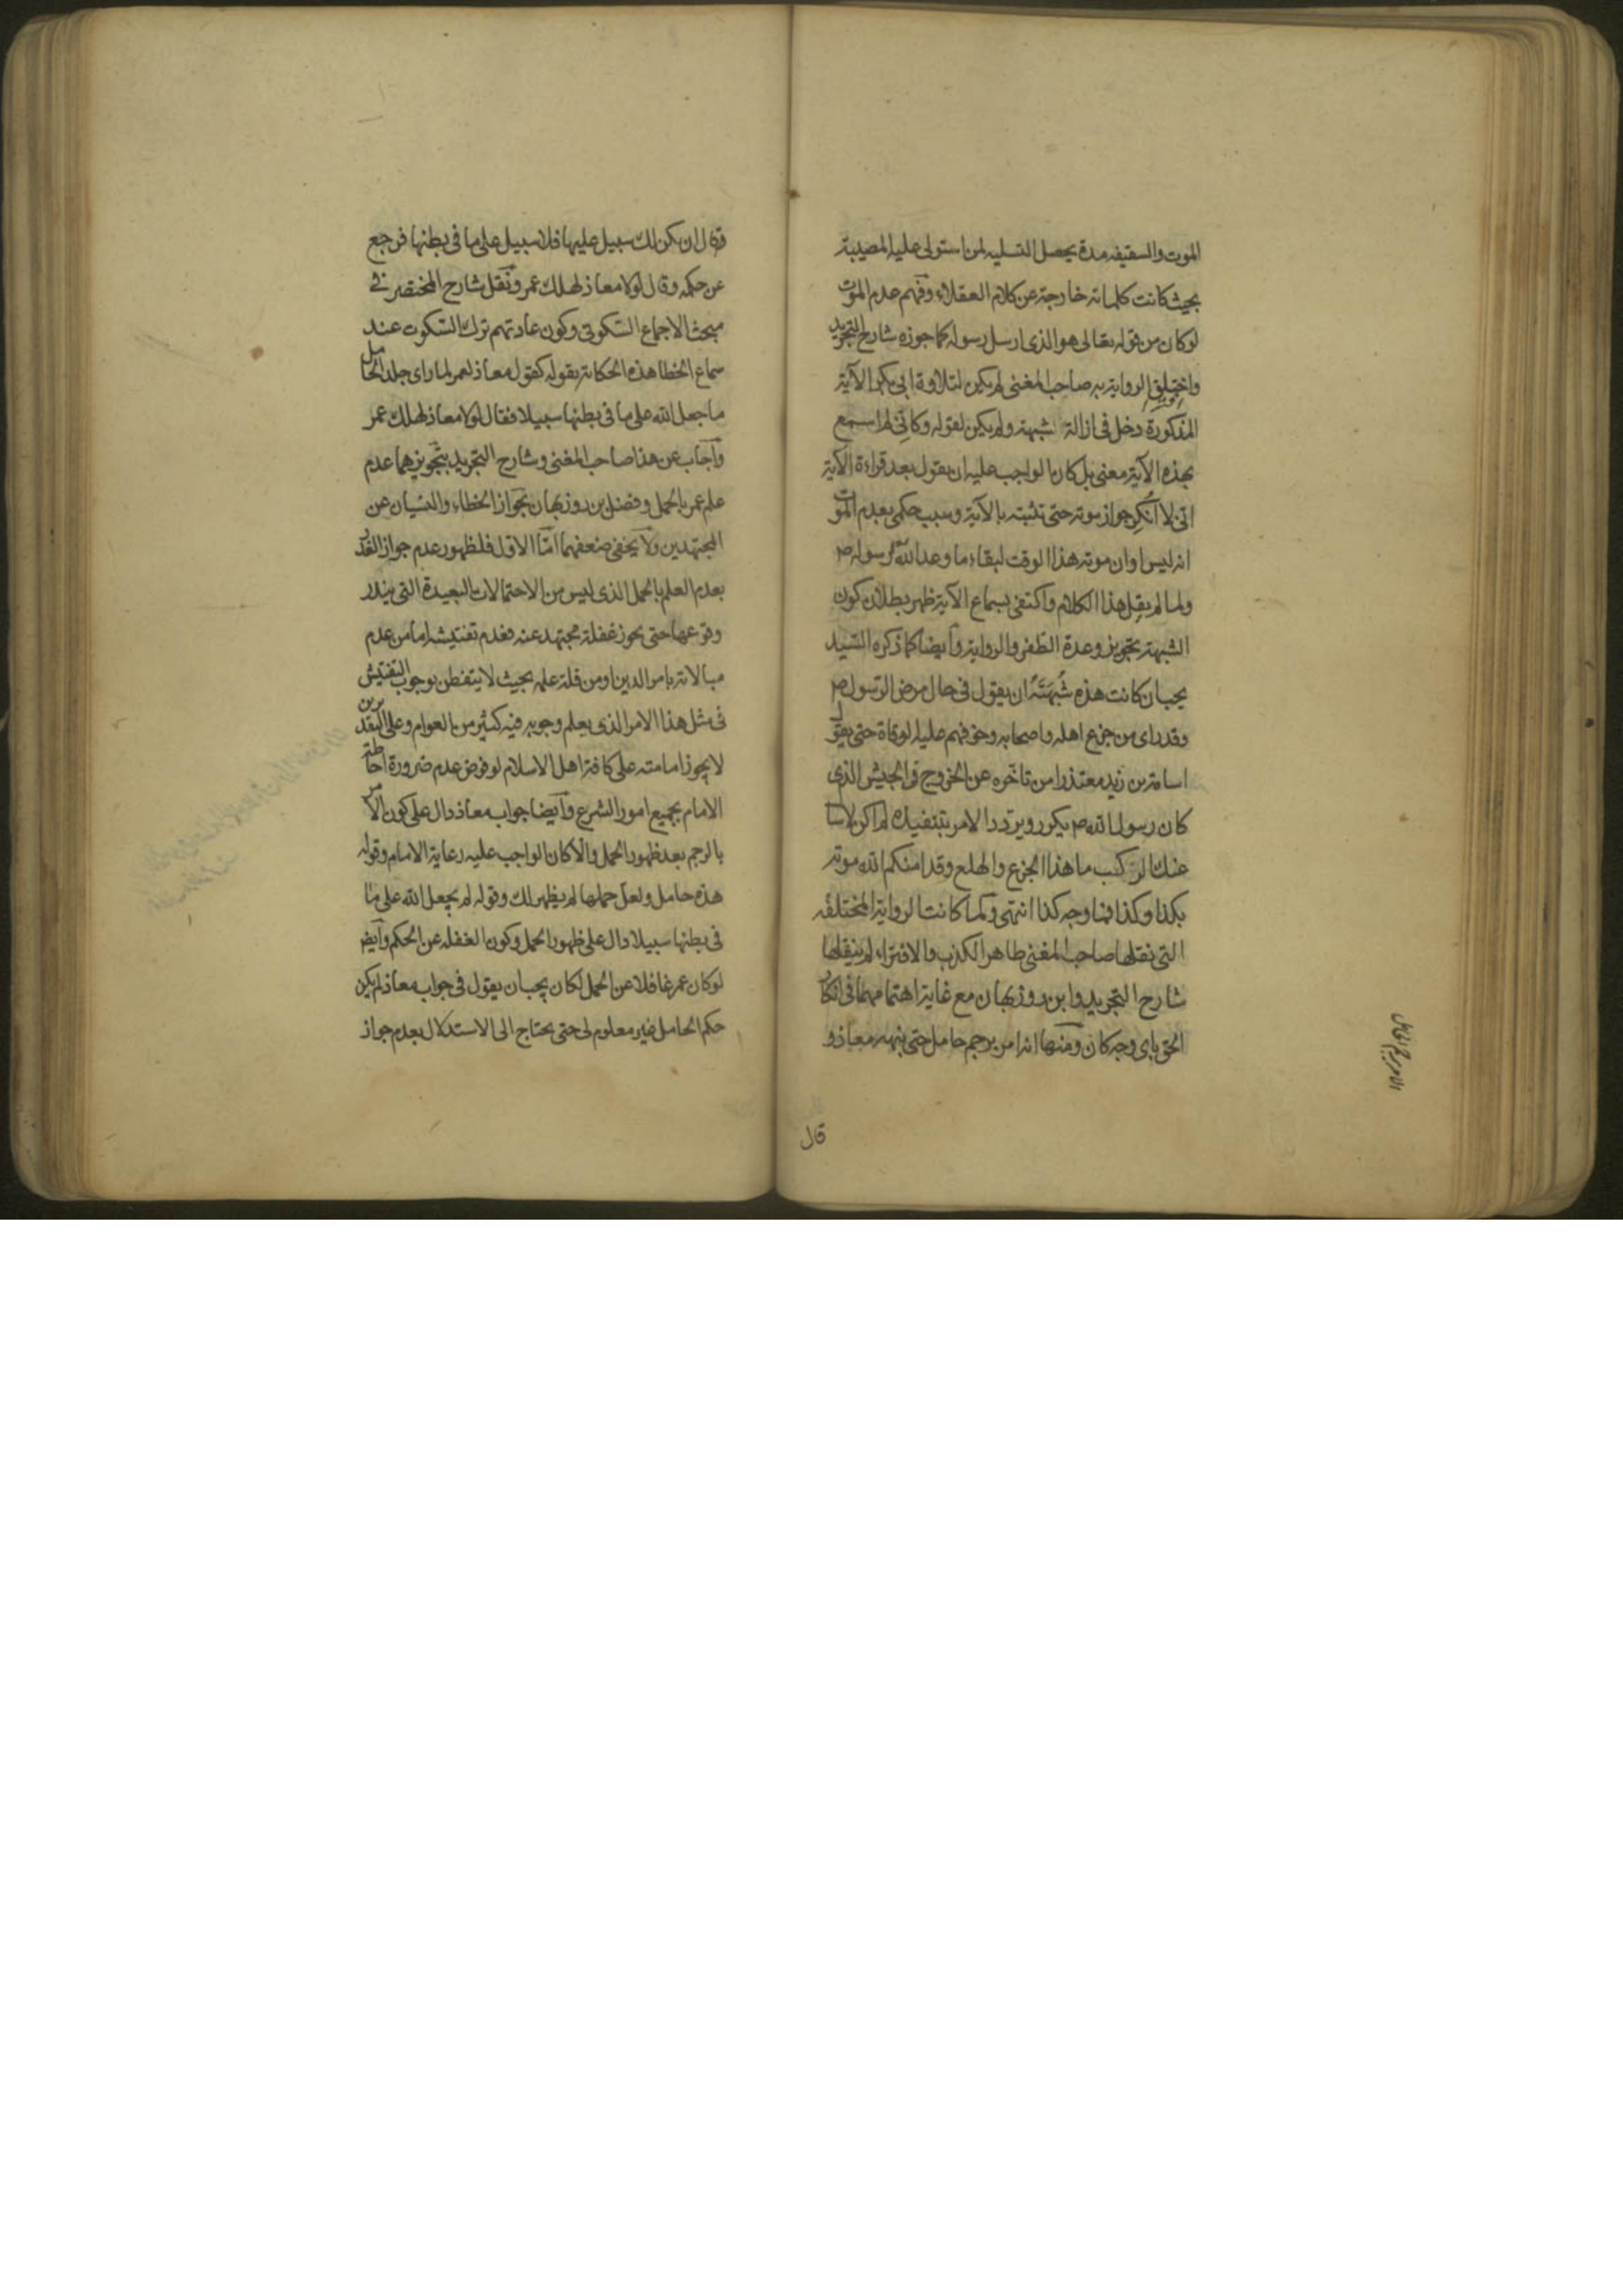 الموت والسقيفه مدة يحصل التسليه لمن استولى عليه المصيبة
بحيث كانت كلماته خارجة عن كلام العقلاء وفهم عدم الموت
لو كان من قوله تعالى هو الذى ارسل رسوله كما جوزه شارح التجريد
واختلق الرواية به صاحب المغنى لم يكن لتلاوة ابى بكر الآية
المذكورة دخل فى ازالة شبهته ولم يكن لقوله وكانى لم اسمع
بهذه الآية معنى بل كان الواجب عليه ان يقول بعد قراءة الآية
انى لا أنكر جواز موته حتى تثبته بالآية وسبب حكمى بعدم الموت
انه ليس اوان موته هذا الوقت لبقاء ما وعد الله رسوله ص
ولما لم يقل هذا الكلام واكتفى بسماع الآية ظهر بطلان كون
الشبهة تجويز وعدة الظفر والرواية وأيضا كما ذكره السيد
يجب ان كانت هذه شُبهَتَهُ ان يقول فى حال مرض الرسول ص
وقد راى من جزع اهله واصحابه وخوفهم عليه الوفاة حتى يقول
اسامة بن زيد معتذرا من تاخره عن الخروج فى الجيش الذى
كان رسول الله ص يكرر ويردد الامر بتنفيذه لم اكن لاسأل
عنك الركب ما هذا الجزع والهلع وقد امنكم الله موته
بكذا وكذا فى وجه كذا انتهى ولما كانت الرواية المختلقه
التى نقلها صاحب المغنى ظاهر الكذب والافتراء لم ينقلها
شارح التجريد وابن روزبهان مع غاية اهتمامهما فى انكار
الحق باى وجه كان ومنها انه امر برجم حامل حتى نبهه معاذ و
قال
فقال ان يكن لك سبيل عليها فلا سبيل على ما فى بطنها فرجع
عن حكمه وقال لولا معاذ لهلك عمر ونقل شارح المختصر فى
مبحث الاجماع السكوتى وكون عادتهم ترك السكوت عند
سماع الخطا هذه الحكاية بقوله كقول معاذ لعمر لما راى جلد الحامل
ما جعل الله على ما فى بطنها سبيلا فقال لولا معاذ لهلك عمر
وأجاب عن هذا صاحب المغنى وشارح التجريد بتجويزهما عدم
علم عمر بالحمل وفضل بن روزبهان بجواز الخطاء والنسيان عن
المجتهدين ولا يخفى ضعفهما امّا الاول فلظهور عدم جواز القدر
بعدم العلم بالحمل الذى ليس من الاحتمالات البعيدة التى يندر
وقوعها حتى يجوز غفلة مجتهد عنه فعدم تفتيشه اما من عدم
مبالاته بامر الدين او من قلة علمه بحيث لا يتفطن بوجوب التفتيش
فى مثل هذا الامر الذى يعلم وجوبه فيه كثير من العوام وعلى التقديرين
لا يجوز امامته على كافة اهل الاسلام لو فرض عدم ضرورة احاطة
الامام بجميع امور الشرع وأيضا جواب معاذ دال على كون الامر
بالرجم بعد ظهور الحمل والا كان الواجب عليه رعاية الامام وقوله
هذه حامل ولعل حملها لم يظهر لك وقوله لم يجعل الله على ما
فى بطنها سبيلا دال على ظهور الحمل وكون الغفله عن الحكم وأيضا
لو كان عمر غافلا عن الحمل لكان يجب ان يقول فى جواب معاذ لم يكن
حكم الحامل غير معلوم لى حتى يحتاج الى الاستدلال بعدم جواز